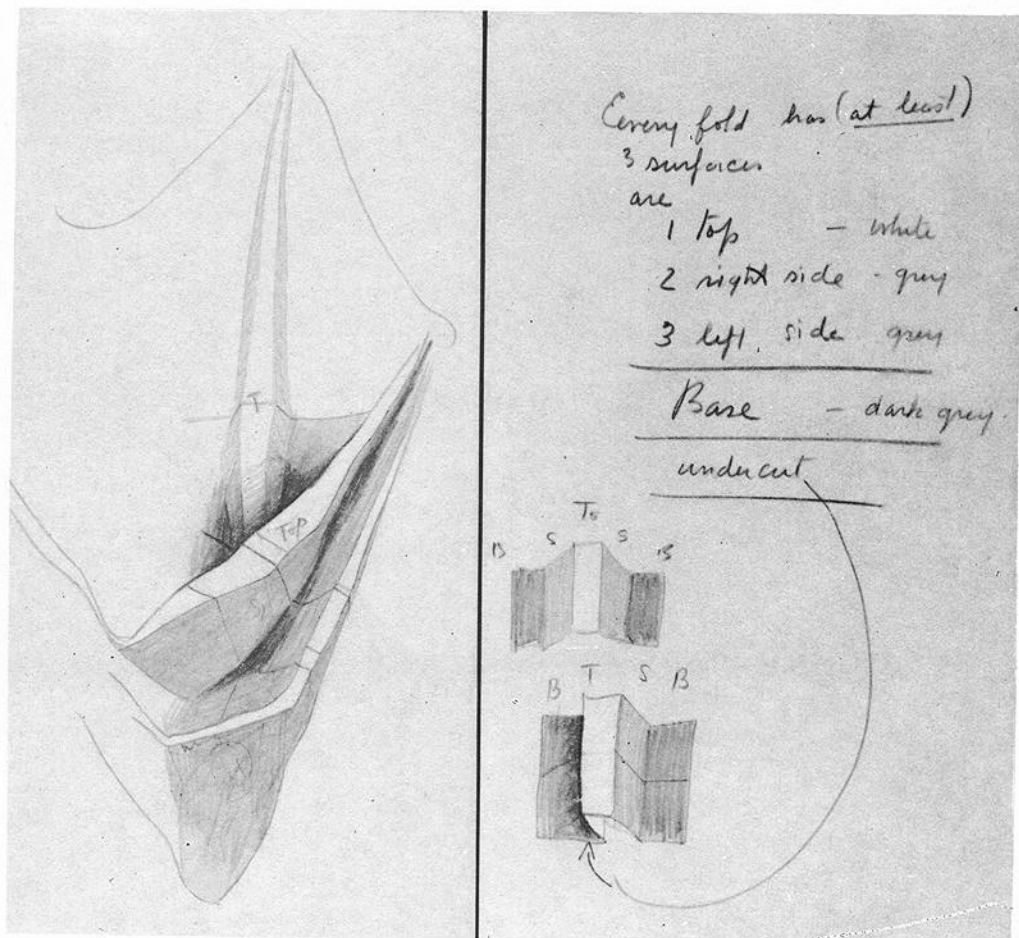 Every fold has (at least)
3 surfaces
are
1 top - white
2 right side - grey
3 left side grey
Base - dark grey.
undercut
To
B S S B
B T S B
T
Top
S